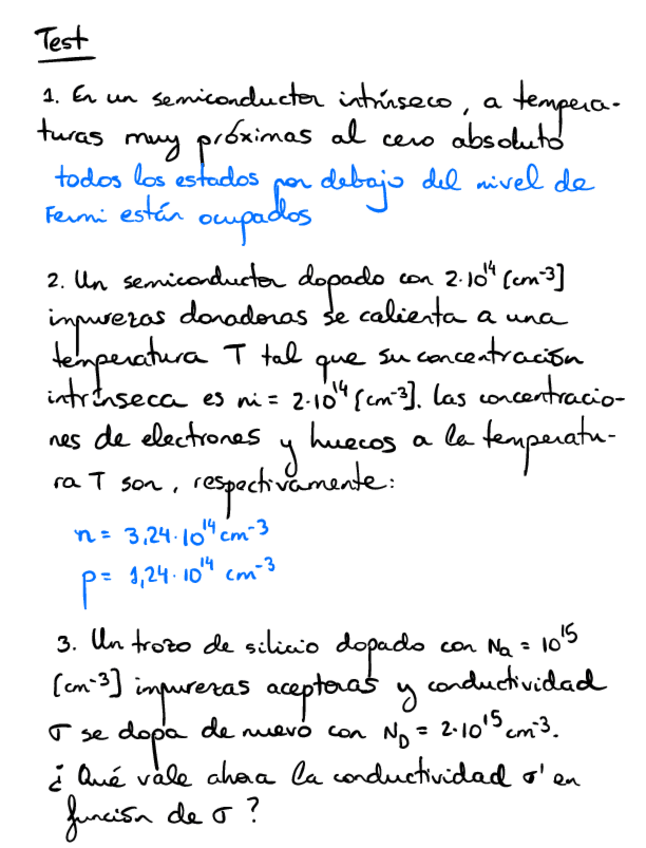 Test
1. En un semiconductor intrínseco, a tempera-
turas muy próximas al cero absoluto
todos los estados por debajo del nivel de
Fermi están ocupados
2. Un semiconductor dopado con 2·10¹⁴ [cm⁻³]
impurezas donadoras se calienta a una
temperatura T tal que su concentración
intrínseca es ni = 2·10¹⁴ [cm⁻³]. Las concentracio-
nes de electrones y huecos a la temperatu-
ra T son, respectivamente:
n = 3,24·10¹⁴ cm⁻³
p = 1,24·10¹⁴ cm⁻³
3. Un trozo de silicio dopado con Na = 10¹⁵
[cm⁻³] impurezas aceptoras y conductividad
σ se dopa de nuevo con N_D = 2·10¹⁵ cm⁻³.
¿Qué vale ahora la conductividad σ' en
función de σ?